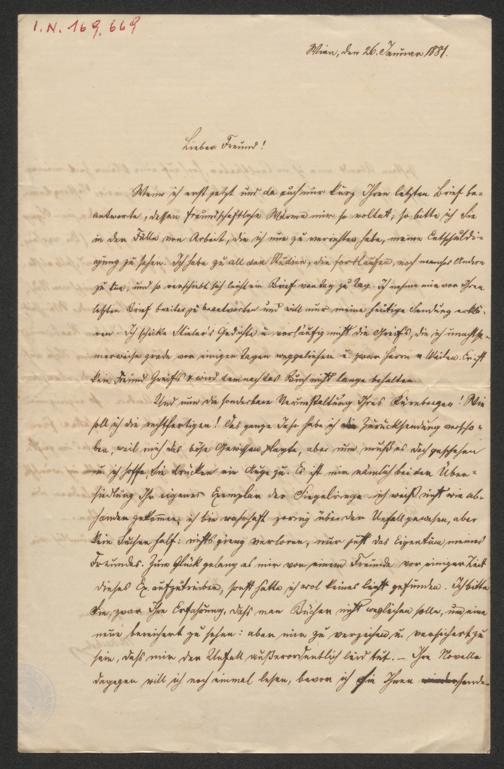 I.N. 169.669
Wien, den 26. Januar 1881.
Lieber Freund!
Wenn ich erst jetzt und da auch nur kurz Ihren letzten Brief be-
antworte, dessen freundschaftliche Wärme mir so wohltat, so bitte ich Sie
in der Fülle von Arbeit, die ich nun zu verrichten habe, meine Entschuldi-
gung zu sehen. Ich habe zu all den Studien, die fortlaufen, noch manches Andere
zu tun, und so verschiebt sich leicht ein Brief von Tag zu Tag. Ich nehme mir vor Ihren
letzten Brief breiter zu beantworten und will nur meine heutige Sendung erklä-
ren. Ich schicke Gedichte u. vorläufig nicht die Greifs, da ich
grade vor einigen Tagen u. zwar Herrn v. Weilen. Er ist
kein Freund Greifs & wird demnach das Buch nicht lange behalten.
Und nun die sonderbare Ihres Kürnberger! Wie
soll ich die rechtfertigen! Das ganze Jahr habe ich die Zurücksendung verscho-
ben, weil mich das böse Gewissen plagte, aber nun muß es doch geschehen
u. ich hoffe Sie drücken ein Auge zu. Es ist mir nämlich bei der Über-
siedlung Ihr eigenes Exemplar der Siegelringe ich weiß nicht wie ab-
handen gekommen, ich bin wahrhaft zornig über den Unfall gewesen, aber
kein Suchen half: nichts gieng verloren, nur just das Eigentum meines
Freundes. Zum Glück gelang es mir von einem Freunde vor einiger Zeit
dieses Ex. aufzutreiben, sonst hätte ich wol keines leicht gefunden. Ich bitte
Sie, zwar Ihre Erfahrung, daß man Bücher nicht verleihen solle, um eine
neue bereichert zu sehen: aber mir zu verzeihen u. versichert zu
sein, daß mir der Unfall außerordentlich leid tut. – Ihre Novelle
dagegen will ich noch einmal lesen, bevor ich sie Ihnen sende.